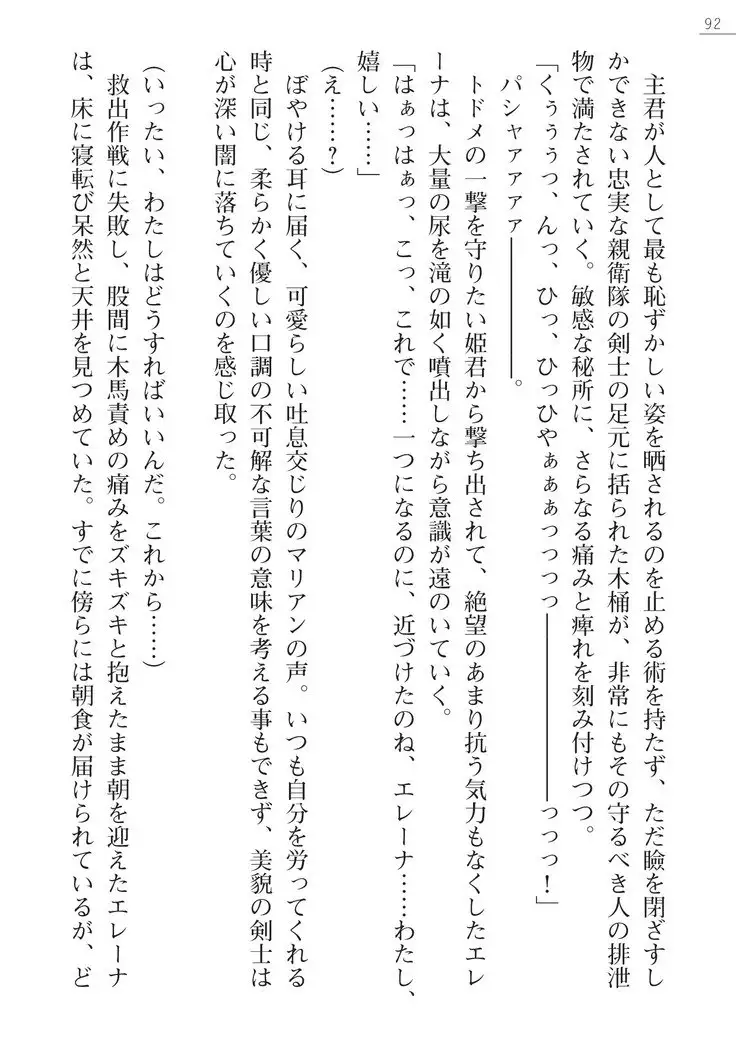 92
主君が人として最も恥ずかしい姿を晒されるのを止める術を持たず、ただ瞼を閉ざすし
かできない忠実な親衛隊の剣士の足元に括られた木桶が、非常にもその守るべき人の排泄
物で満たされていく。敏感な秘所に、さらなる痛みと痺れを刻み付けつつ。
「くぅぅぅっ、んっ、ひっ、ひっひやぁぁぁっっっっ――――――っっっ！」
パシャァァァァ――――――。
トドメの一撃を守りたい姫君から撃ち出されて、絶望のあまり抗う気力もなくしたエレ
ーナは、大量の尿を滝の如く噴出しながら意識が遠のいていく。
「はぁっはぁっ、こっ、これで……一つになるのに、近づけたのね、エレーナ……わたし、
嬉しい……」
(え……？)
ぼやける耳に届く、可愛らしい吐息交じりのマリアンの声。いつも自分を労ってくれる
時と同じ、柔らかく優しい口調の不可解な言葉の意味を考える事もできず、美貌の剣士は
心が深い闇に落ちていくのを感じ取った。
(いったい、わたしはどうすればいいんだ。これから……)
救出作戦に失敗し、股間に木馬責めの痛みをズキズキと抱えたまま朝を迎えたエレーナ
は、床に寝転び呆然と天井を見つめていた。すでに傍らには朝食が届けられているが、ど